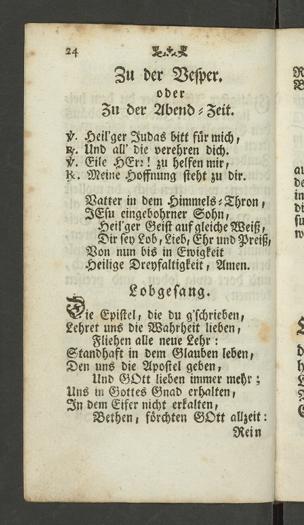 24
Zu der Vesper.
oder
Zu der Abend-Zeit.
℣. Heil'ger Judas bitt für mich,
℟. Und all' die verehren dich.
℣. Eile HErr! zu helfen mir,
℟. Meine Hoffnung steht zu dir.
Vatter in dem Himmels-Thron,
JEsu eingebohrner Sohn,
Heil'ger Geist auf gleiche Weiß,
Dir sey Lob, Lieb, Ehr und Preiß,
Von nun bis in Ewigkeit
Heilige Dreyfaltigkeit, Amen.
Lobgesang.
Die Epistel, die du g'schrieben,
Lehret uns die Wahrheit lieben,
Fliehen alle neue Lehr:
Standhaft in dem Glauben leben,
Den uns die Apostel geben,
Und GOtt lieben immer mehr;
Uns in Gottes Gnad erhalten,
In dem Eifer nicht erkalten,
Bethen, förchten GOtt allzeit:
Rein